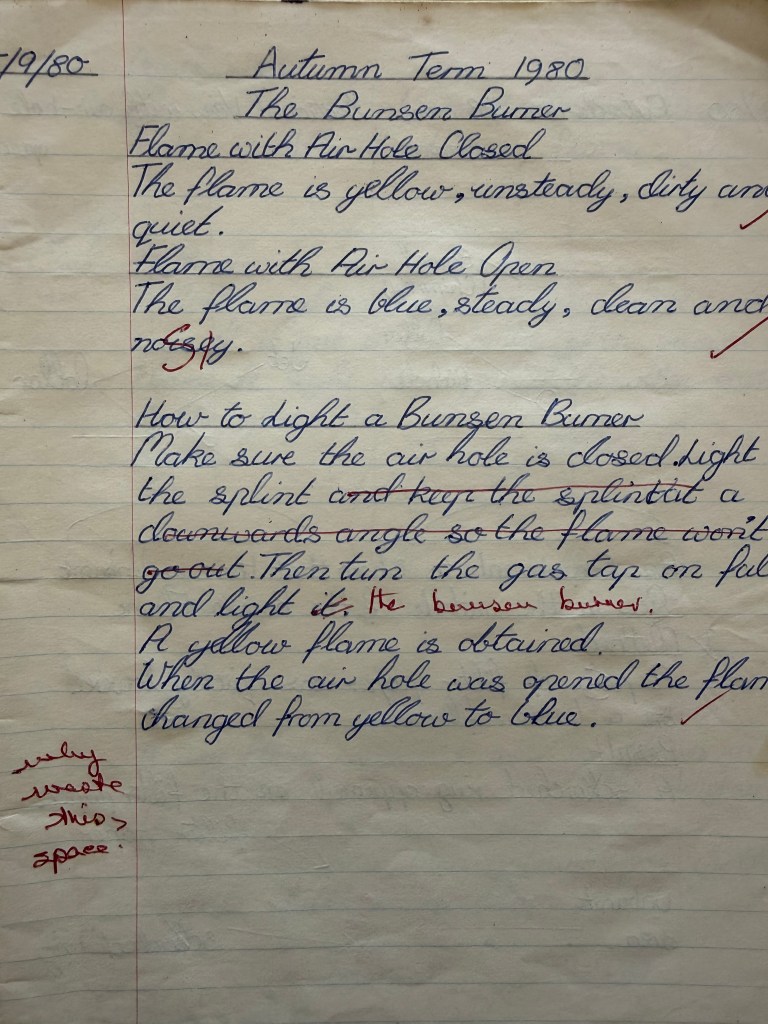 /9/80 Autumn Term 1980
The Bunsen Burner
Flame with Air Hole Closed
The flame is yellow, unsteady, dirty and
quiet.
Flame with Air Hole Open
The flame is blue, steady, clean and
noisey.
How to Light a Bunsen Burner
Make sure the air hole is closed. Light
the splint and keep the splint at a
downwards angle so the flame won't
go out. Then turn the gas tap on full
and light it. the bunsen burner.
A yellow flame is obtained.
When the air hole was opened the flam
changed from yellow to blue.
why
waste
this
space.